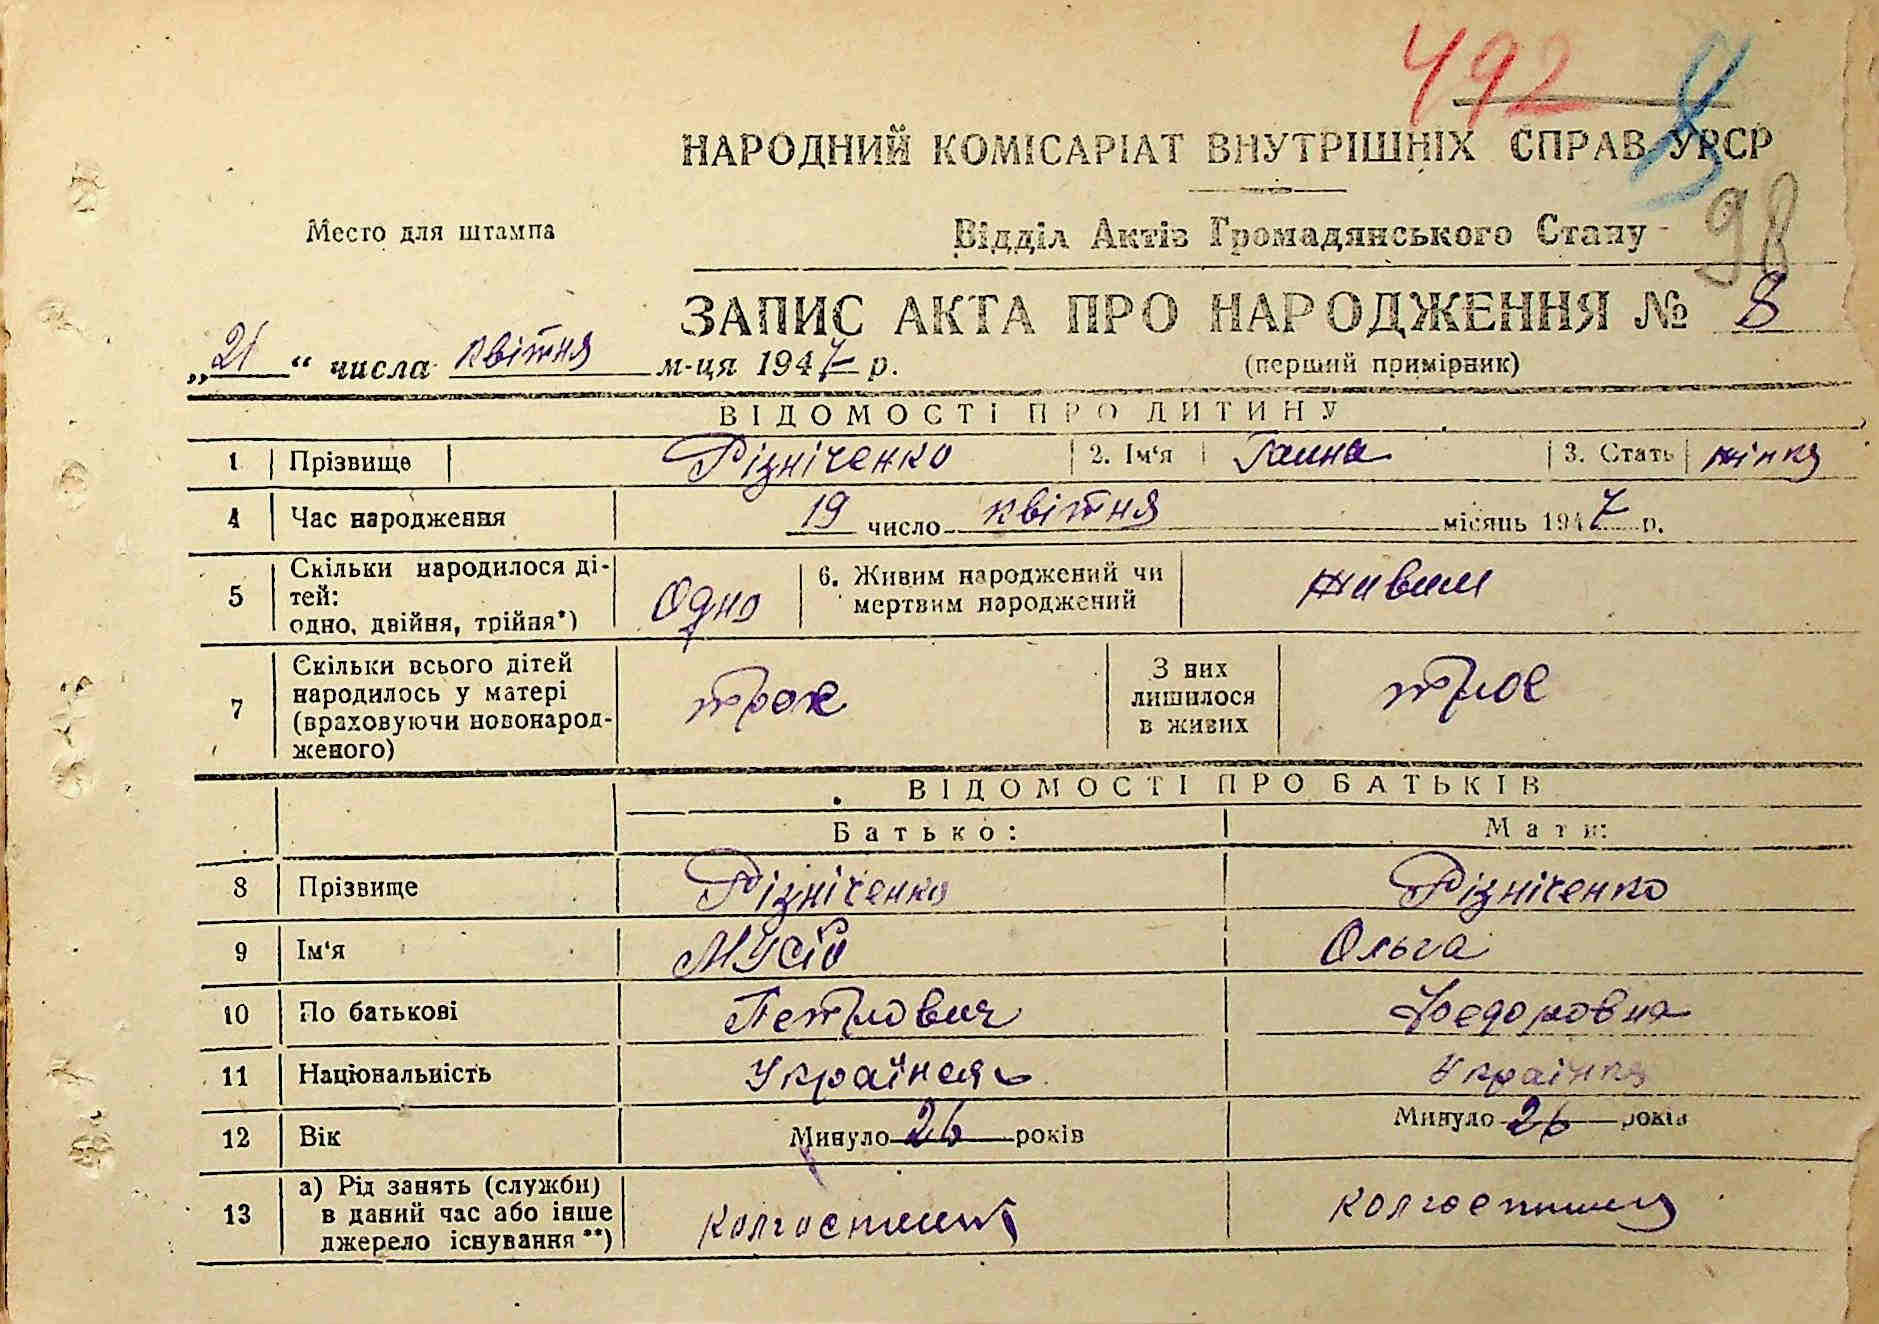 492
НАРОДНИЙ КОМІСАРІАТ ВНУТРІШНІХ СПРАВ УРСР
Место для штампа
Відділ Актів Громадянського Стану
98
ЗАПИС АКТА ПРО НАРОДЖЕННЯ № 8
„21“ числа квітня м-ця 1947 р.
(перший примірник)
ВІДОМОСТІ ПРО ДИТИНУ
1 Прізвище Різніченко 2. Ім'я Ганна 3. Стать жінка
4 Час народження 19 число квітня місяць 1947 р.
5 Скільки народилося ді-
тей:
одно, двійня, трійня*) Одно
6. Живим народжений чи
мертвим народжений живим
7 Скільки всього дітей
народилось у матері
(враховуючи новонарод-
женого) троє
З них
лишилося
в живих троє
ВІДОМОСТІ ПРО БАТЬКІВ
Батько: Мати:
8 Прізвище Різніченко Різніченко
9 Ім'я Мусій Ольга
10 По батькові Петрович Федоровна
11 Національність Українець Українка
12 Вік Минуло 26 років Минуло 26 років
13 а) Рід занять (служби)
в даний час або інше
джерело існування**) колгоспник колгоспниця